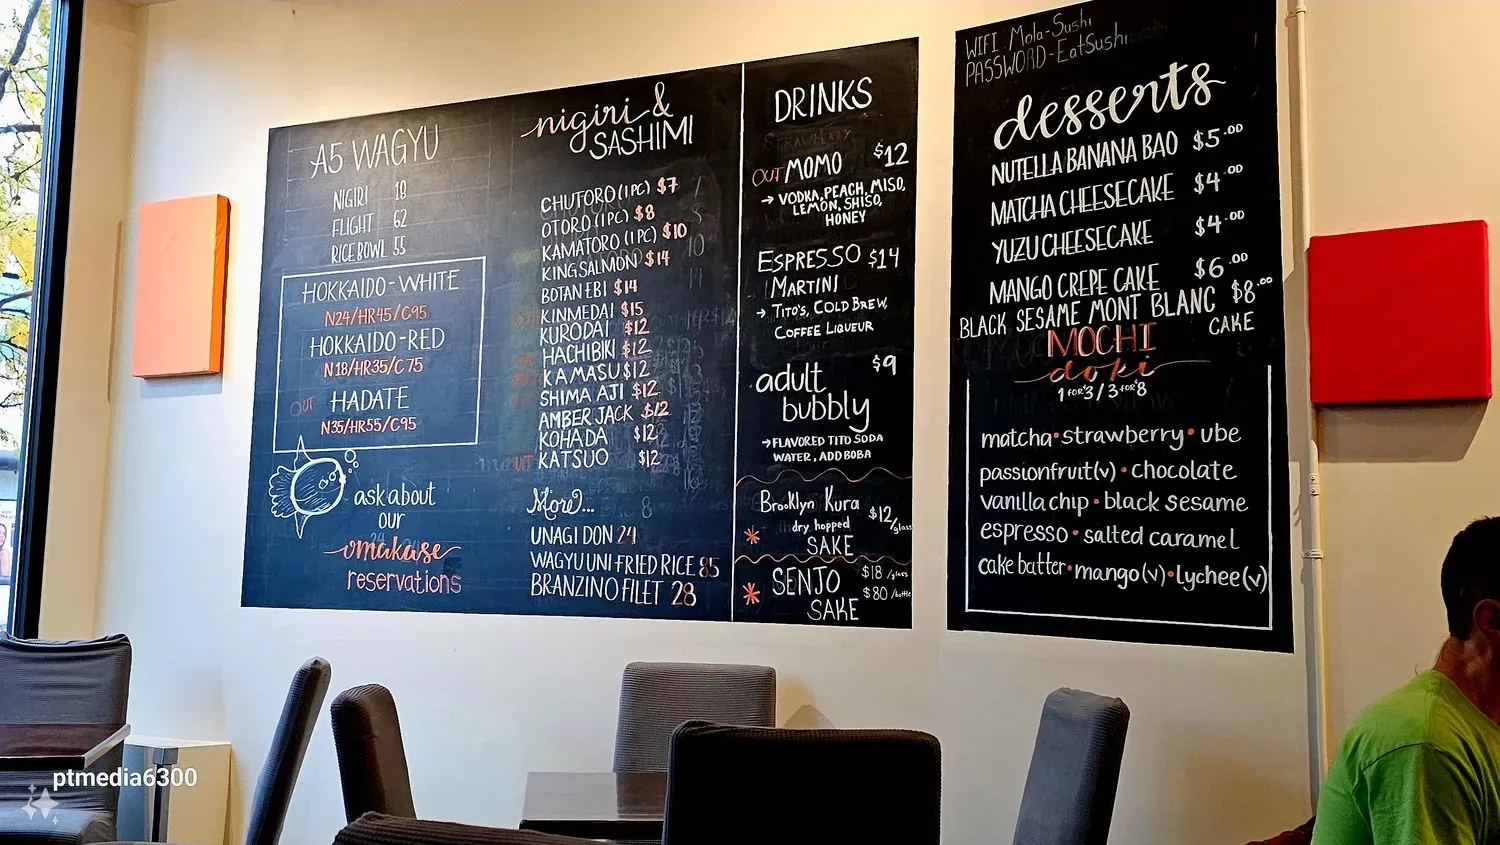 A5 WAGYU
NIGIRI 18
FLIGHT 62
RICE BOWL 55
HOKKAIDO-WHITE
N24/HR45/C95
HOKKAIDO-RED
N18/HR35/C75
OUT HADATE
N35/HR55/C95
ask about
our
omakase
reservations
nigiri &
SASHIMI
CHUTORO (1 PC) $7
OTORO (1 PC) $8
KAMATORO (1 PC) $10
KING SALMON $14
BOTAN EBI $14
KINMEDAI $15
KURODAI $12
HACHIBIKI $12
KAMASU $12
SHIMA AJI $12
AMBER JACK $12
KOHADA $12
OUT KATSUO $12
More...
UNAGI DON 24
WAGYU UNI FRIED RICE 85
BRANZINO FILET 28
DRINKS
STRAWBERRY
OUT MOMO $12
→ VODKA, PEACH, MISO,
LEMON, SHISO,
HONEY
ESPRESSO $14
MARTINI
→ TITO'S, COLD BREW,
COFFEE LIQUEUR
$9
adult
bubbly
→ FLAVORED TITO SODA
WATER, ADD BOBA
Brooklyn Kura
dry hopped $12/glass
* SAKE
* SENJO $18/glass
SAKE $80/bottle
WIFI Mola-Sushi
PASSWORD-EatSushi
desserts
NUTELLA BANANA BAO $5.00
MATCHA CHEESECAKE $4.00
YUZU CHEESECAKE $4.00
MANGO CREPE CAKE $6.00
BLACK SESAME MONT BLANC $8.00
CAKE
MOCHI
doki
1 FOR $3 / 3 FOR $8
matcha • strawberry • ube
passionfruit(v) • chocolate
vanilla chip • black sesame
espresso • salted caramel
cake batter • mango(v) • lychee(v)
ptmedia6300